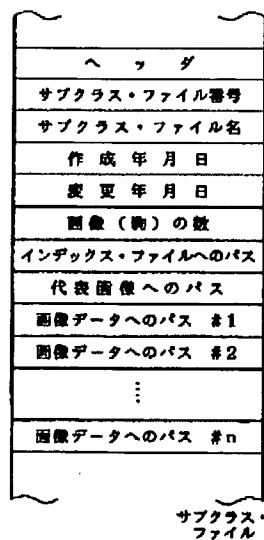 ヘッダ
サブクラス・ファイル番号
サブクラス・ファイル名
作成年月日
変更年月日
画像（駒）の数
インデックス・ファイルへのパス
代表画像へのパス
画像データへのパス #1
画像データへのパス #2
⋮
画像データへのパス #n
サブクラス・
ファイル